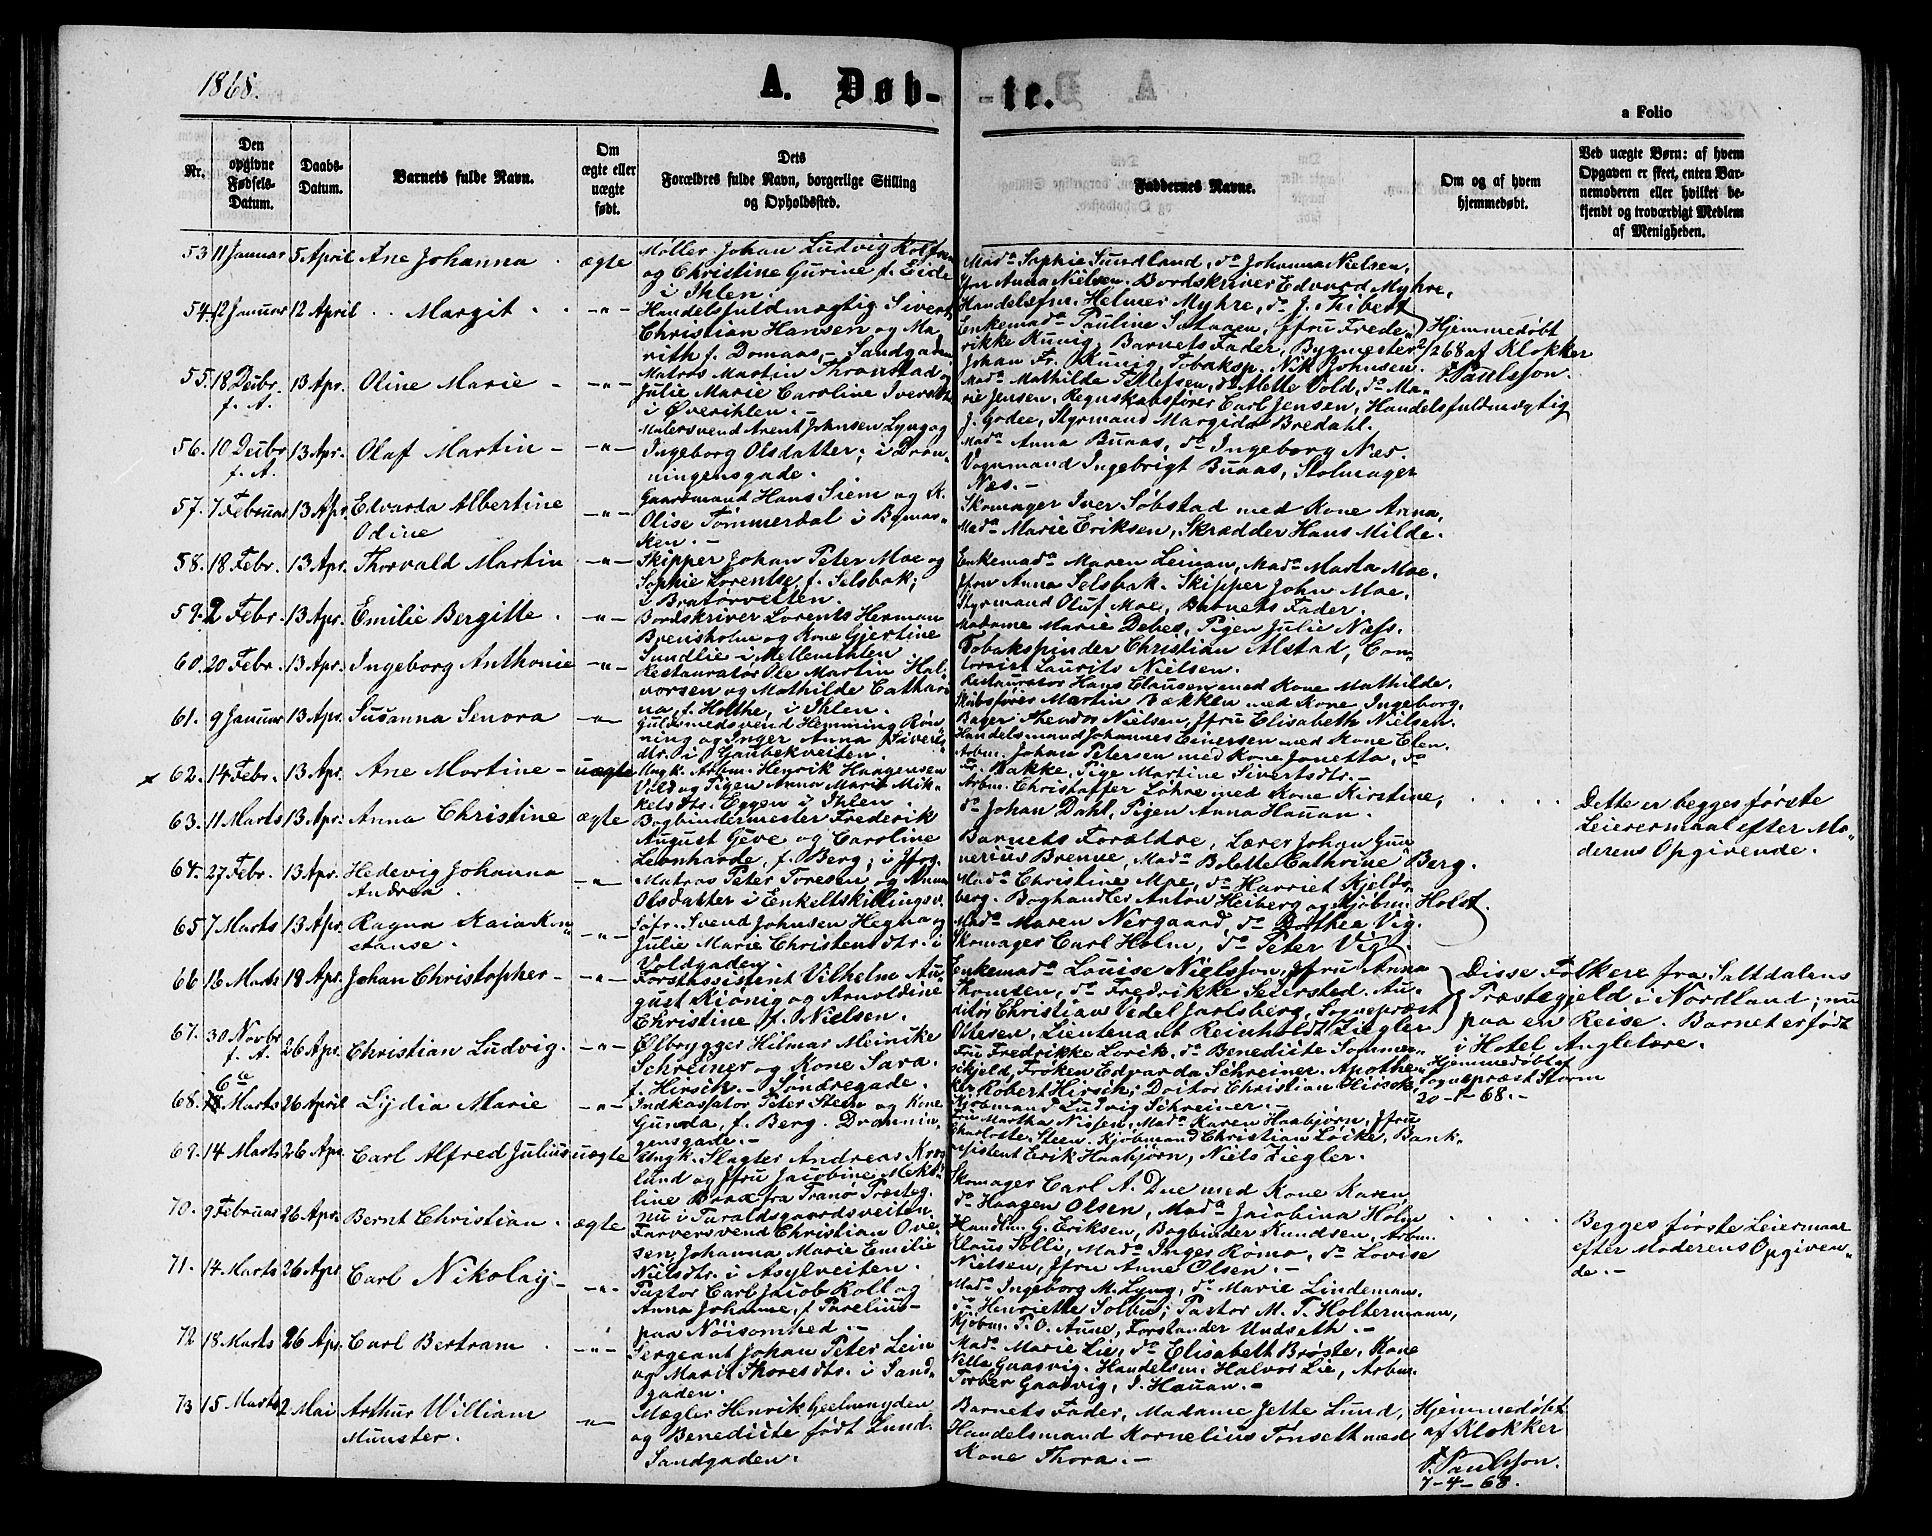 1868.
A. Døb-
te.
a Folio
Nr.
Den opgivne Fødsels-Datum.
Daabs-Datum.
Barnets fulde Navn.
Om ægte eller uægte født.
Dets Forældres fulde Navn, borgerlige Stilling og Opholdssted.
Faddernes Navne.
Om og af hvem hjemmedøbt.
Ved uægte Børn: af hvem Opgaven er skeet, enten Barnemoderen eller hvilket bekjendt og troværdigt Medlem af Menigheden.
53 11 Januar 5 April Ane Johanna. ægte
Møller Johan Ludvig
og Christine Gurine f. Eide
i Ihlen.
Mada Sophie Sundland, da Johanna Nielsen,
Jfru Anna Nielsen. Bordskriver Edvard Myhre,
Handelsfm. Helmer Myhre, da J. Thibest
54. 12 Januar 12 April Margit -"-
Handelsfuldmægtig Sivert
Christian Hansen og Ma-
rith f. Domaas, - Sandgaden
Enkemada Pauline Jfru Frede-
rikke Kunig, Barnets Fader, Bygmester
Johan Fr. Kunig, Tobaksp. Nik. Johnsen.
Hjemmedøbt
2/2 68 af Klokker
Paulsson.
55. 18 Decbr. f. A. 13 Apr. Oline Marie - -"-
Matros Martin Thronstad og
Julie Marie Caroline
i Øverihlen. -
Mada Mathilde Tetlefsen, da Mette Vold, da Ma-
rie Jensen, Regnskabsfører Carl Jensen, Handelsfuldmægtig
J. Godee, Styrmand Margido Bredahl.
56. 10 Decbr f. A. 13 Apr. Olaf Martin - -"-
Malersvend Arent Johnsen Lyng og
Ingeborg Olsdatter; i Dron-
ningensgade.
Mada Anna Buaas, da Ingeborg Næs.
Vognmand Ingebrigt Buaas, Stolmager
Næs. -
57. 7 Februar 13 Apr. Edvarda Albertine
Odine -"-
Gaardmand Hans Siem og K.
Olise Tømmerdal i Bymar-
ken. -
Skomager Iver Søbstad med Kone Anna,
Mada Marie Eriksen, Skrædder Hans Milde.
58. 18 Febr. 13 Apr. Thorvald Martin -"-
Skipper Johan Peter Moe og
Sophie Lorentse, f. Selsbak;
i Bratørveiten.
Enkemada Maren Leinan, Mada Marta Moe,
Jfru Anna Selsbak. Skipper John Moe,
Styrmand Oluf Moe, Barnets Fader.
59. 2 Febr. 13 Apr. Emilie Bergitte. -"-
Bordskriver Lorents Herman
Brensholm og Kone Gjertine
Sundlie i Mellemihlen
Madame Marie Debes, Pigen Julie Næss.
Tobakspinder Christian Alstad, Con-
torist Laurits Nielsen.
60. 20 Febr. 13 Apr. Ingeborg Anthonie -"-
Restauratør Ole Martin Hal-
vorsen og Mathilde Cathari-
na, f. Holthe, i Ihlen.
Restauratør Hans Clausen med Kone Mathilde.
Skibsfører Martin Bækken med Kone Ingeborg.
Bager Theodor Nielsen, Jfru Elisabeth Nielsen.
61. 9 Januar 13 Apr. Susanna Senora -"-
Guldsmedsvend Hemming Røn-
ning og Inger Anna Sivert-
dtr. i Gaubekveiten.
Handelsmand Johannes Einersen med Kone Elen.
Arbm. Johan Petersen med Kone Jonetta, da
Fr. Bakke, Pige Martine Sivertsdtr. -
62. 14 Febr. 13 Apr. Ane Martine - uægte
Ungk. Arbm. Henrik Haagensen
Vold og Pigen Anna Marit Mik-
kelsdtr. Eggen i Ihlen.
Arbm. Christoffer Løhre med Kone Kirstine,
da Johan Dahl, Pigen Anna Hauan.
Dette er begges første
Leiermaal efter Mo-
derens Opgivende.
63. 11 Marts 13 Apr. Anna Christine ægte
Bogbindermester Frederik
August Geve og Caroline
Leonharde, f. Berg; i
Barnets Forældre, Lærer Johan Gun-
nerius Brenne, Mada Bolette Cathrine Berg.
64. 27 Febr. 13 Apr. Hedevig Johanna
Andrea. -"-
Matros Peter Toresen og Anna
Olsdatter i Enkeltskillingsv.
Mada Christine Moe, da Harriet Kjelds-
berg. Boghandler Anton Heiberg og Kjøbm. Holst.
65 7 Marts 13 Apr. Ragna Kaia Kon-
stanse. -"-
Søfr. Svend Johnsen Hegna og
Julie Marie Christensdtr. i
Voldgaden.
Mada Maren Nergaard, da Dorthea Vig.
Skomager Carl Holm, da Peter Vig.
66 18 Marts 19 Apr. Johan Christopher - -"-
Forstassistent Vilhelm Au-
gust Kiønig og Arnoldine
Christine f. Nielsen.
Enkemada Louise Nielsson, Jfru Anna
Thomsen, da Fredrikke Seierstad. Au-
ditør Christian Vedel Jarlsberg, Sognepræst
Ottesen, Lieutenant Reinholdt Ziegler
Disse Folk ere fra Saltdalens
Præstegjeld i Nordland; nu
paa en Reise. Barnet er født
i Hotel Angleterre.
67. 30 Novbr f. A. 26 Apr. Christian Ludvig. -"-
Ølbrygger Hilmar Meinike
Schreiner og Kone Sara,
f. Hirsch. - Søndregade.
Fru Fredrikke Lorck, da Benedicte Sommer-
schjeld, Frøken Edvarda Schreiner. Apothe-
ker Robert Hirsch, Doctor Christian Hirsch.
Kjøbmand Ludvig Schreiner. -
Hjemmedøbt af
Sognepræst Storm
30-1-68. -
68. 6te Marts 26 April Lydia Marie -"-
Indkassator Peter Steen og Kone
Gunda, f. Berg. Dronnin-
gensgade. -
Fru Martha Nissen, Mada Karen Haabjørn, Jfru
Charlotte Steen. Kjøbmand Christian Løcke, Bank-
assistent Erik Haabjørn, Niels Ziegler.
69. 14 Marts 26 Apr. Carl Alfred Julius uægte
Ungk. Slagter Andreas
lund og Jfru Jacobine
line Brax fra Tranø Præsteg.
nu i Taraldsgaardsveiten.
Skomager Carl A. Due med Kone Karen,
da Haagen Olsen, Mada Jacobina Holm
Begges første Leiermaal
efter Moderens Opgiven-
de. -
70. 9 Februar 26 Apr. Bernt Christian. ægte
Farversvend Christian Ove-
sen, Johanna Marie Emilie
Nielsdtr. i Asylveiten.
Handlm. G. Eriksen, Bogbinder Knudsen, Arbm.
Claus Solli, Mada Inger Rømo, da Lovise
Nielsen, Jfru Anne Olsen. -
71. 14 Marts 26 Apr. Carl Nikolay - -"-
Pastor Carl Jacob Roll og
Anna Johanne, f. Parelius -
paa Nøisomhed. -
Mada Ingeborg M. Lyng, da Marie Lindeman,
da Henriette Solbu; Pastor M. T. Holtermann,
Kjøbm. P. O. Aune, Forstander Undseth. -
72 18 Marts 26 Apr. Carl Bertram. -"-
Sergeant Johan Peter Lein
og Marit Thoresdtr. i Sand-
gaden.
Mada Marie Lie, da Elisabeth Brøste, Kone
Nella Gaasvig. Handelsm. Halvor Lie, Arbm.
Torber Gaasvig, J. Hauan. -
73 15 Marts 2 Mai Arthur William
Münster. -"-
Mægler Henrik Geelmuyden
og Benedicte født Lund.
Sandgaden.
Barnets Fader, Madame Jette Lund,
Handelsmand Kornelius Tonseth med
Kone Thora. -
Hjemmedøbt
af Klokker
Paulsson.
7-4-68.